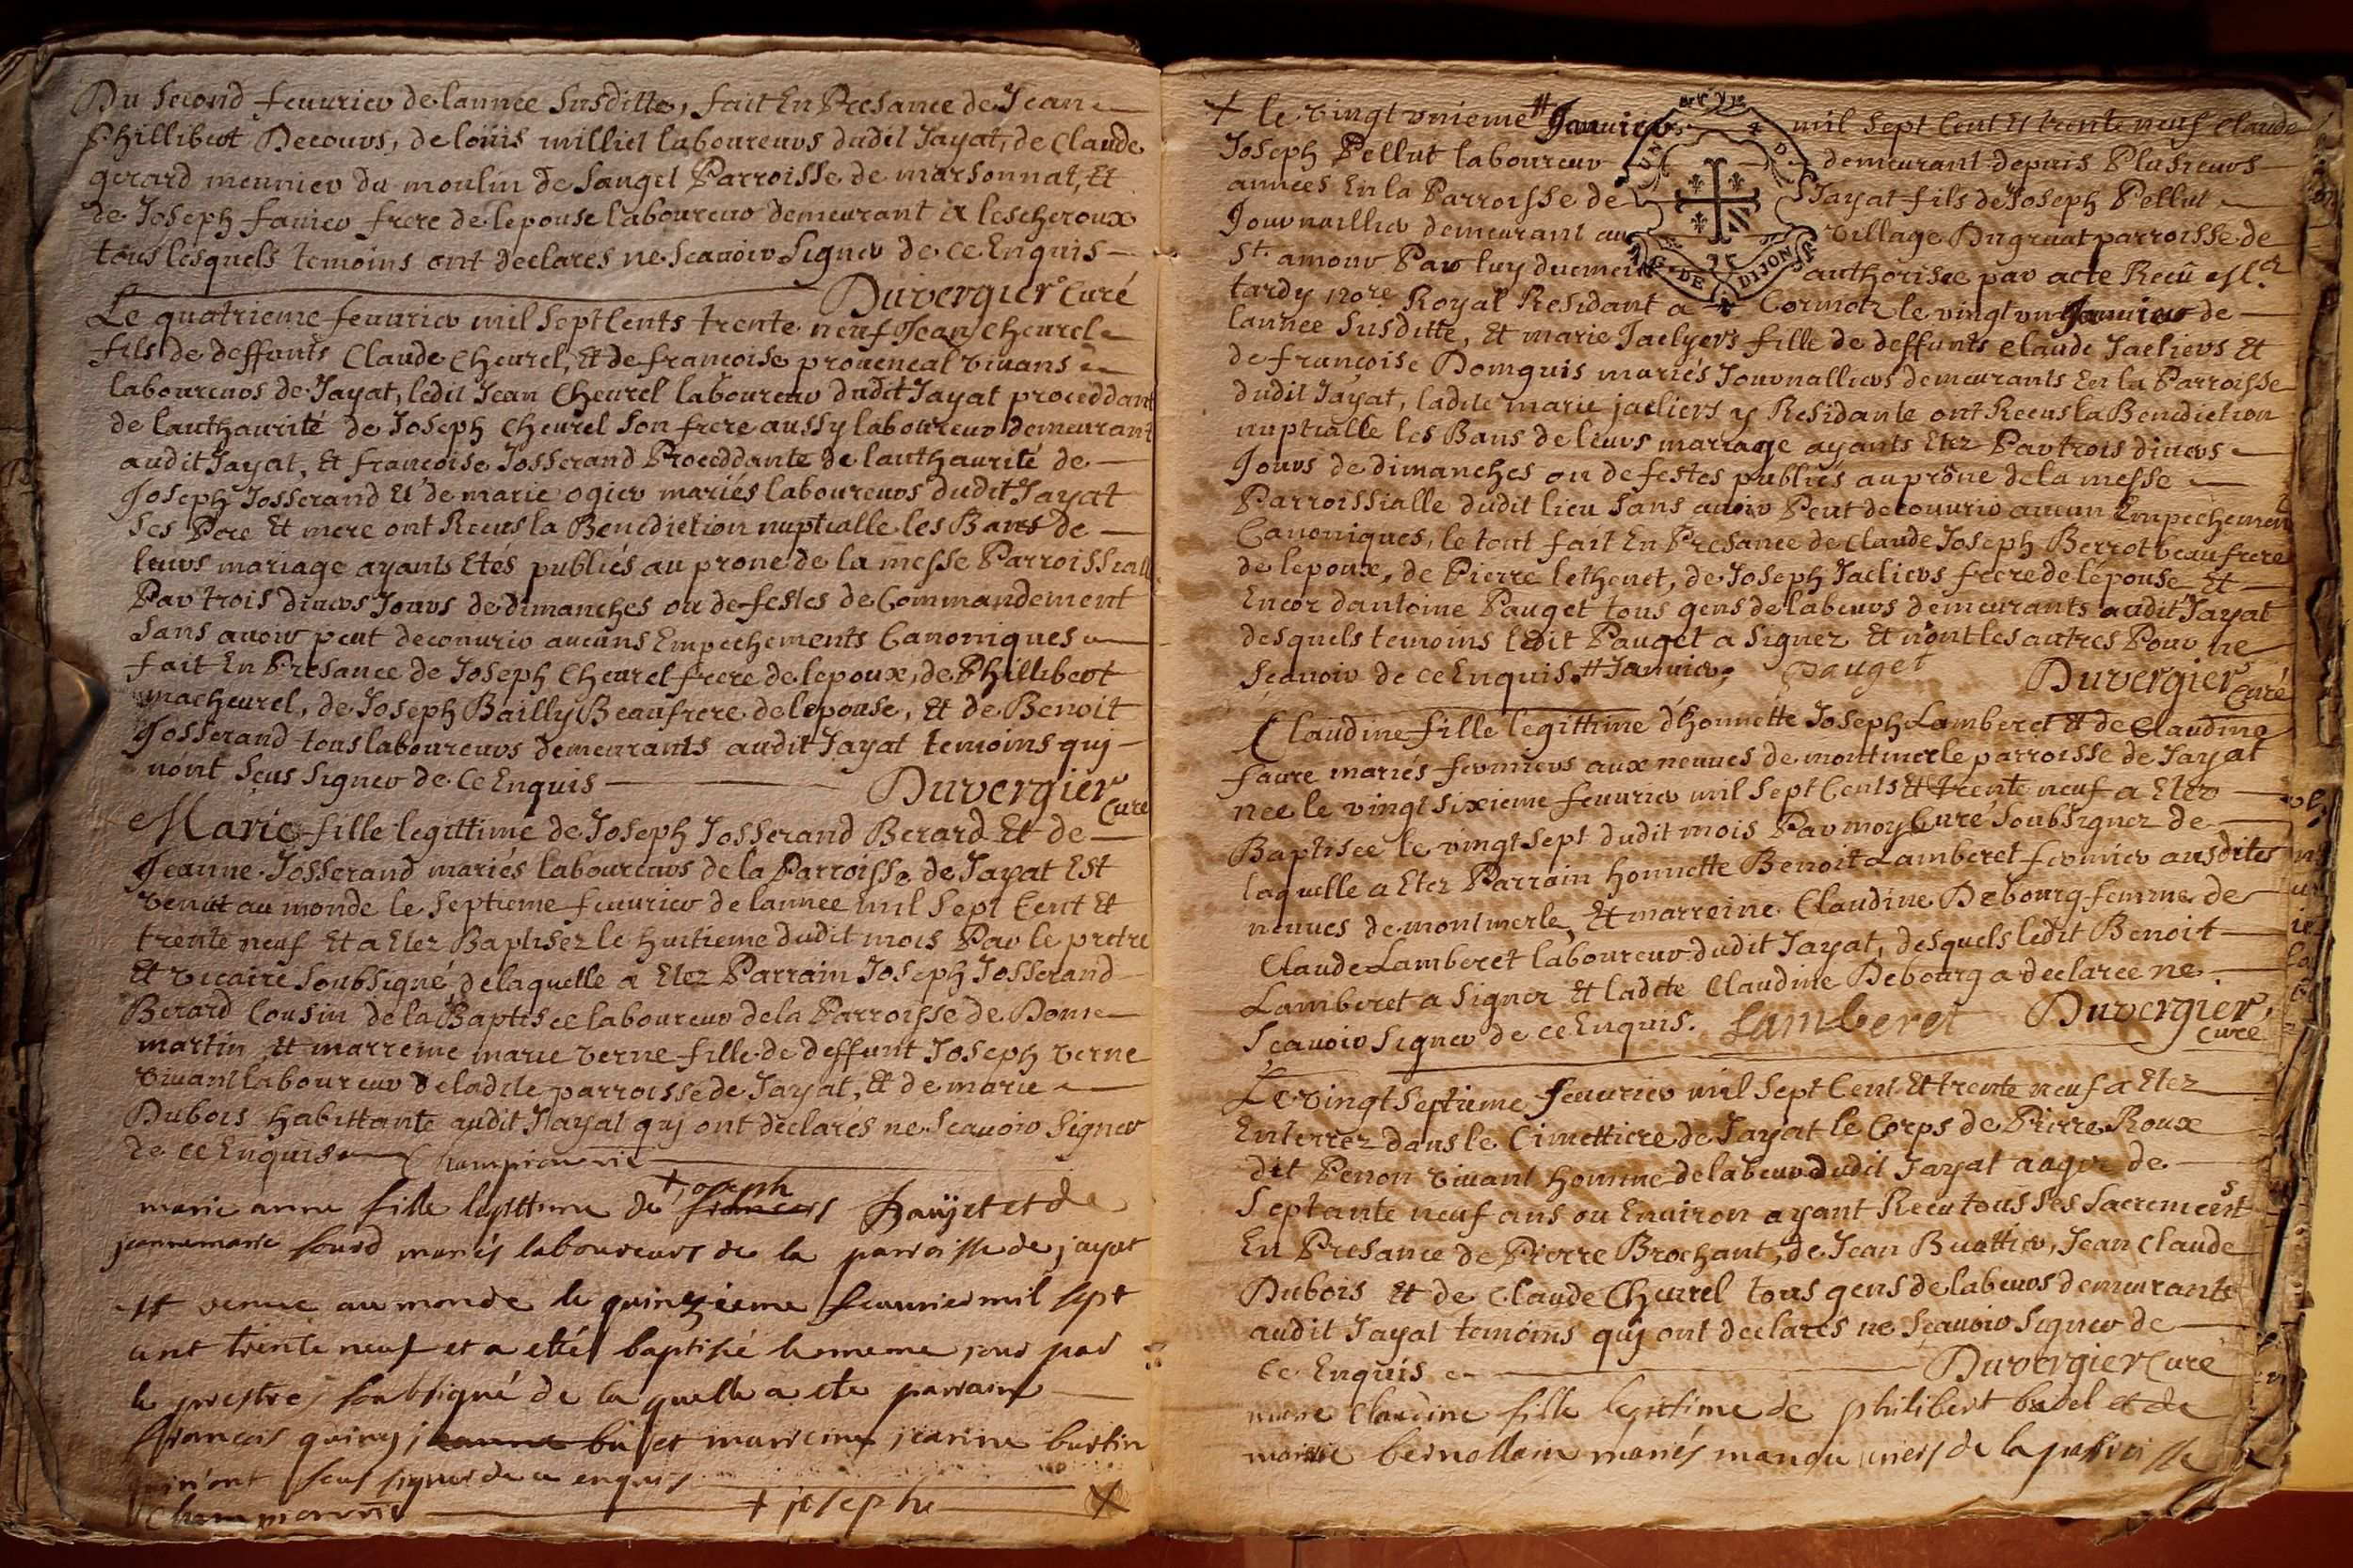 Du second feuurier de lannee susditte, fait En Presance de Jean
Phillibert Decours, de loüis milliet laboureurs dudit Jayat, de Claude
gerard meunier du moulin de Sauget Parroisse de marsonnat, Et
de Joseph fauier frere de lepouse laboureur demeurant a lescheroux
tous lesquels temoins ont declarés ne Scauoir Signer de ce Enquis
Duvergier Curé
Le quatrieme feuurier mil Sept Cents trente neuf Jean cheurel
fils de deffunts Claude Cheurel, Et de francoise prouencal viuans
laboureurs de Jayat, ledit Jean Cheurel laboureur dudit Jayat proceddant
de lauthaurité de Joseph Cheurel Son frere aussy laboureur demeurant
audit Jayat, Et francoise Josserand Proceddante de lauthaurité de
Joseph Josserand Et de marie ogier mariés laboureurs dudit Jayat
Ses Pere Et mere ont Recus la Benediction nuptialle les Bans de
leurs mariage ayants Etés publiés au prone de la messe Parroissiall
Par trois diuers Jours de dimanches ou de festes de Commandement
Sans auoir peut decouurir aucuns Empechements Canoniques
fait En Presance de Joseph Cheurel frere de lepoux, de Phillibert
macheurel, de Joseph Bailly Beaufrere de lepouse, Et de Benoit
Josserand tous laboureurs demeurants audit Jayat temoins quj
nont Scus Signer de Ce Enquis
Duvergier Curé
Marie fille legittime de Joseph Josserand Berard Et de
Jeanne Josserand mariés laboureurs de la Parroisse de Jayat Est
venüe au monde le Septieme feuurier de lannee mil Sept Cent Et
trente neuf Et a Etez Baptisez le huitieme dudit mois Par le pretre
Et vicaire Soubsigné, de laquelle a Etez Parrain Joseph Josserand
Berard Cousin de la Baptisee laboureur de la Parroisse de Dom
martin, Et marreine marie verne fille de deffunt Joseph verne
viuant laboureur de ladite parroisse de Jayat, Et de marie
Dubois habittante audit Jayat quj ont declarés ne Scauoir Signer
de ce Enquis
+ joseph
marie anne fille legittime de francois et de
jeanne marie sourd mariés laboureurs de la parroisse de jayat
est venue au monde le quinzieme feuurier mil sept
cent trente neuf et a etté baptisé le meme jour par
le prestre soubsigné de la quelle a ete parrain
francois j jeanne bu et marreine jeanne burtin
qui nont sceus signer de ce enquis
+ josephe
+ le vingt vnieme # Januier mil Sept Cent Et trente neuf Claude
Joseph Pellut laboureur demeurant depuis Plusieurs
annees En la Parroisse de Jayat fils de Joseph Pellut
Journaillier demeurant au village Dugruat parroisse de
St. amour Par luy duement authorisee par acte Recû Me
tardy nore Royal Residant a Cormoz le vingt vn Januier de
lannee Susditte, Et marie Jaelyers fille de deffunts Claude Jaeliers Et
de francoise Domguis mariés Journalliers demeurants En la Parroisse
dudit Jayat, ladite marie jaeliers y Residante ont Recus la Benediction
nuptialle les Bans de leurs mariage ayants Etez Par trois diuers
Jours de dimanches ou de festes publiés au prône de la messe
Parroissialle dudit lieu Sans auoir Peut decouurir aucun Empechement
Canoniques, le tout fait En Presance de Claude Joseph Berrot beaufrere
de lepoux, de Pierre lethenet, de Joseph Jaeliers frere de lépouse Et
Encor dantoine Pauget tous gens de labeurs demeurants audit Jayat
desquels temoins ledit Pauget a Signez Et nont les autres Pour ne
Scauoir de ce Enquis. # Januier, pauget Duvergier Curé
Claudine fille legittime d'honnette Joseph Lamberet Et de Claudine
faure mariés fermiers aux neuues de montmerle parroisse de Jayat
nee le vingt sixieme feuurier mil Sept Cents Et trente neuf a Etez
Baptisee le vingt Sept dudit mois Par moy Curé Soubsignez de
laquelle a Etez Parrain honnette Benoit Lamberet fermier ausdites
neuues de montmerle, Et marreine Claudine Debourg femme de
Claude Lamberet laboureur dudit Jayat, desquels ledit Benoit
Lamberet a Signer Et ladite Claudine Debourg a declaree ne
Scauoir Signer de ce Enquis. Lamberet Duvergier, curé
Le vingt Septieme feuurier mil Sept Cent Et trente neuf a Etez
Enterrez dans le Cimettiere de Jayat le Corps de Pierre Roux
dit Penon viuant homme de labeur dudit Jayat aagé de
Septante neuf ans ou Enuiron ayant Receu tous Ses Sacrements
En Presance de Pierre Brochant, de Jean Buattier, Jean Claude
Dubois Et de Claude Cheurel tous gens de labeurs demeurants
audit Jayat temoins quj ont declarés ne Scauoir Signer de
Ce Enquis Duvergier Curé
marie Claudine fille legittime de philibert badel et de
marie bernollain mariés manouuriers de la parroisse
DE DIJON